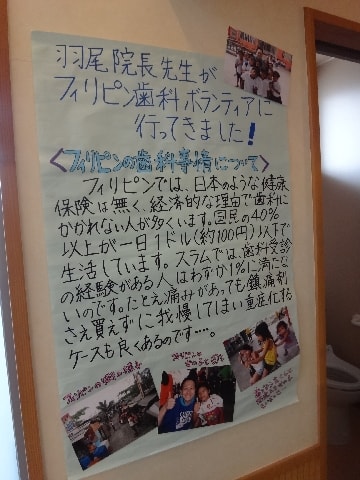 羽尾院長先生が
フィリピン歯科ボランティアに
行ってきました!
<フィリピンの歯科事情について>
フィリピンでは、日本のような健康
保険は無く、経済的な理由で歯科に
かかれない人が多くいます。国民の40%
以上が一日1ドル(約100円)以下で
生活しています。スラムでは、歯科受診
の経験がある人はわずか1%に満たな
いのです。たとえ痛みがあっても鎮痛剤
さえ買えずに我慢してしまい重症化する
ケースも良くあるのです…。